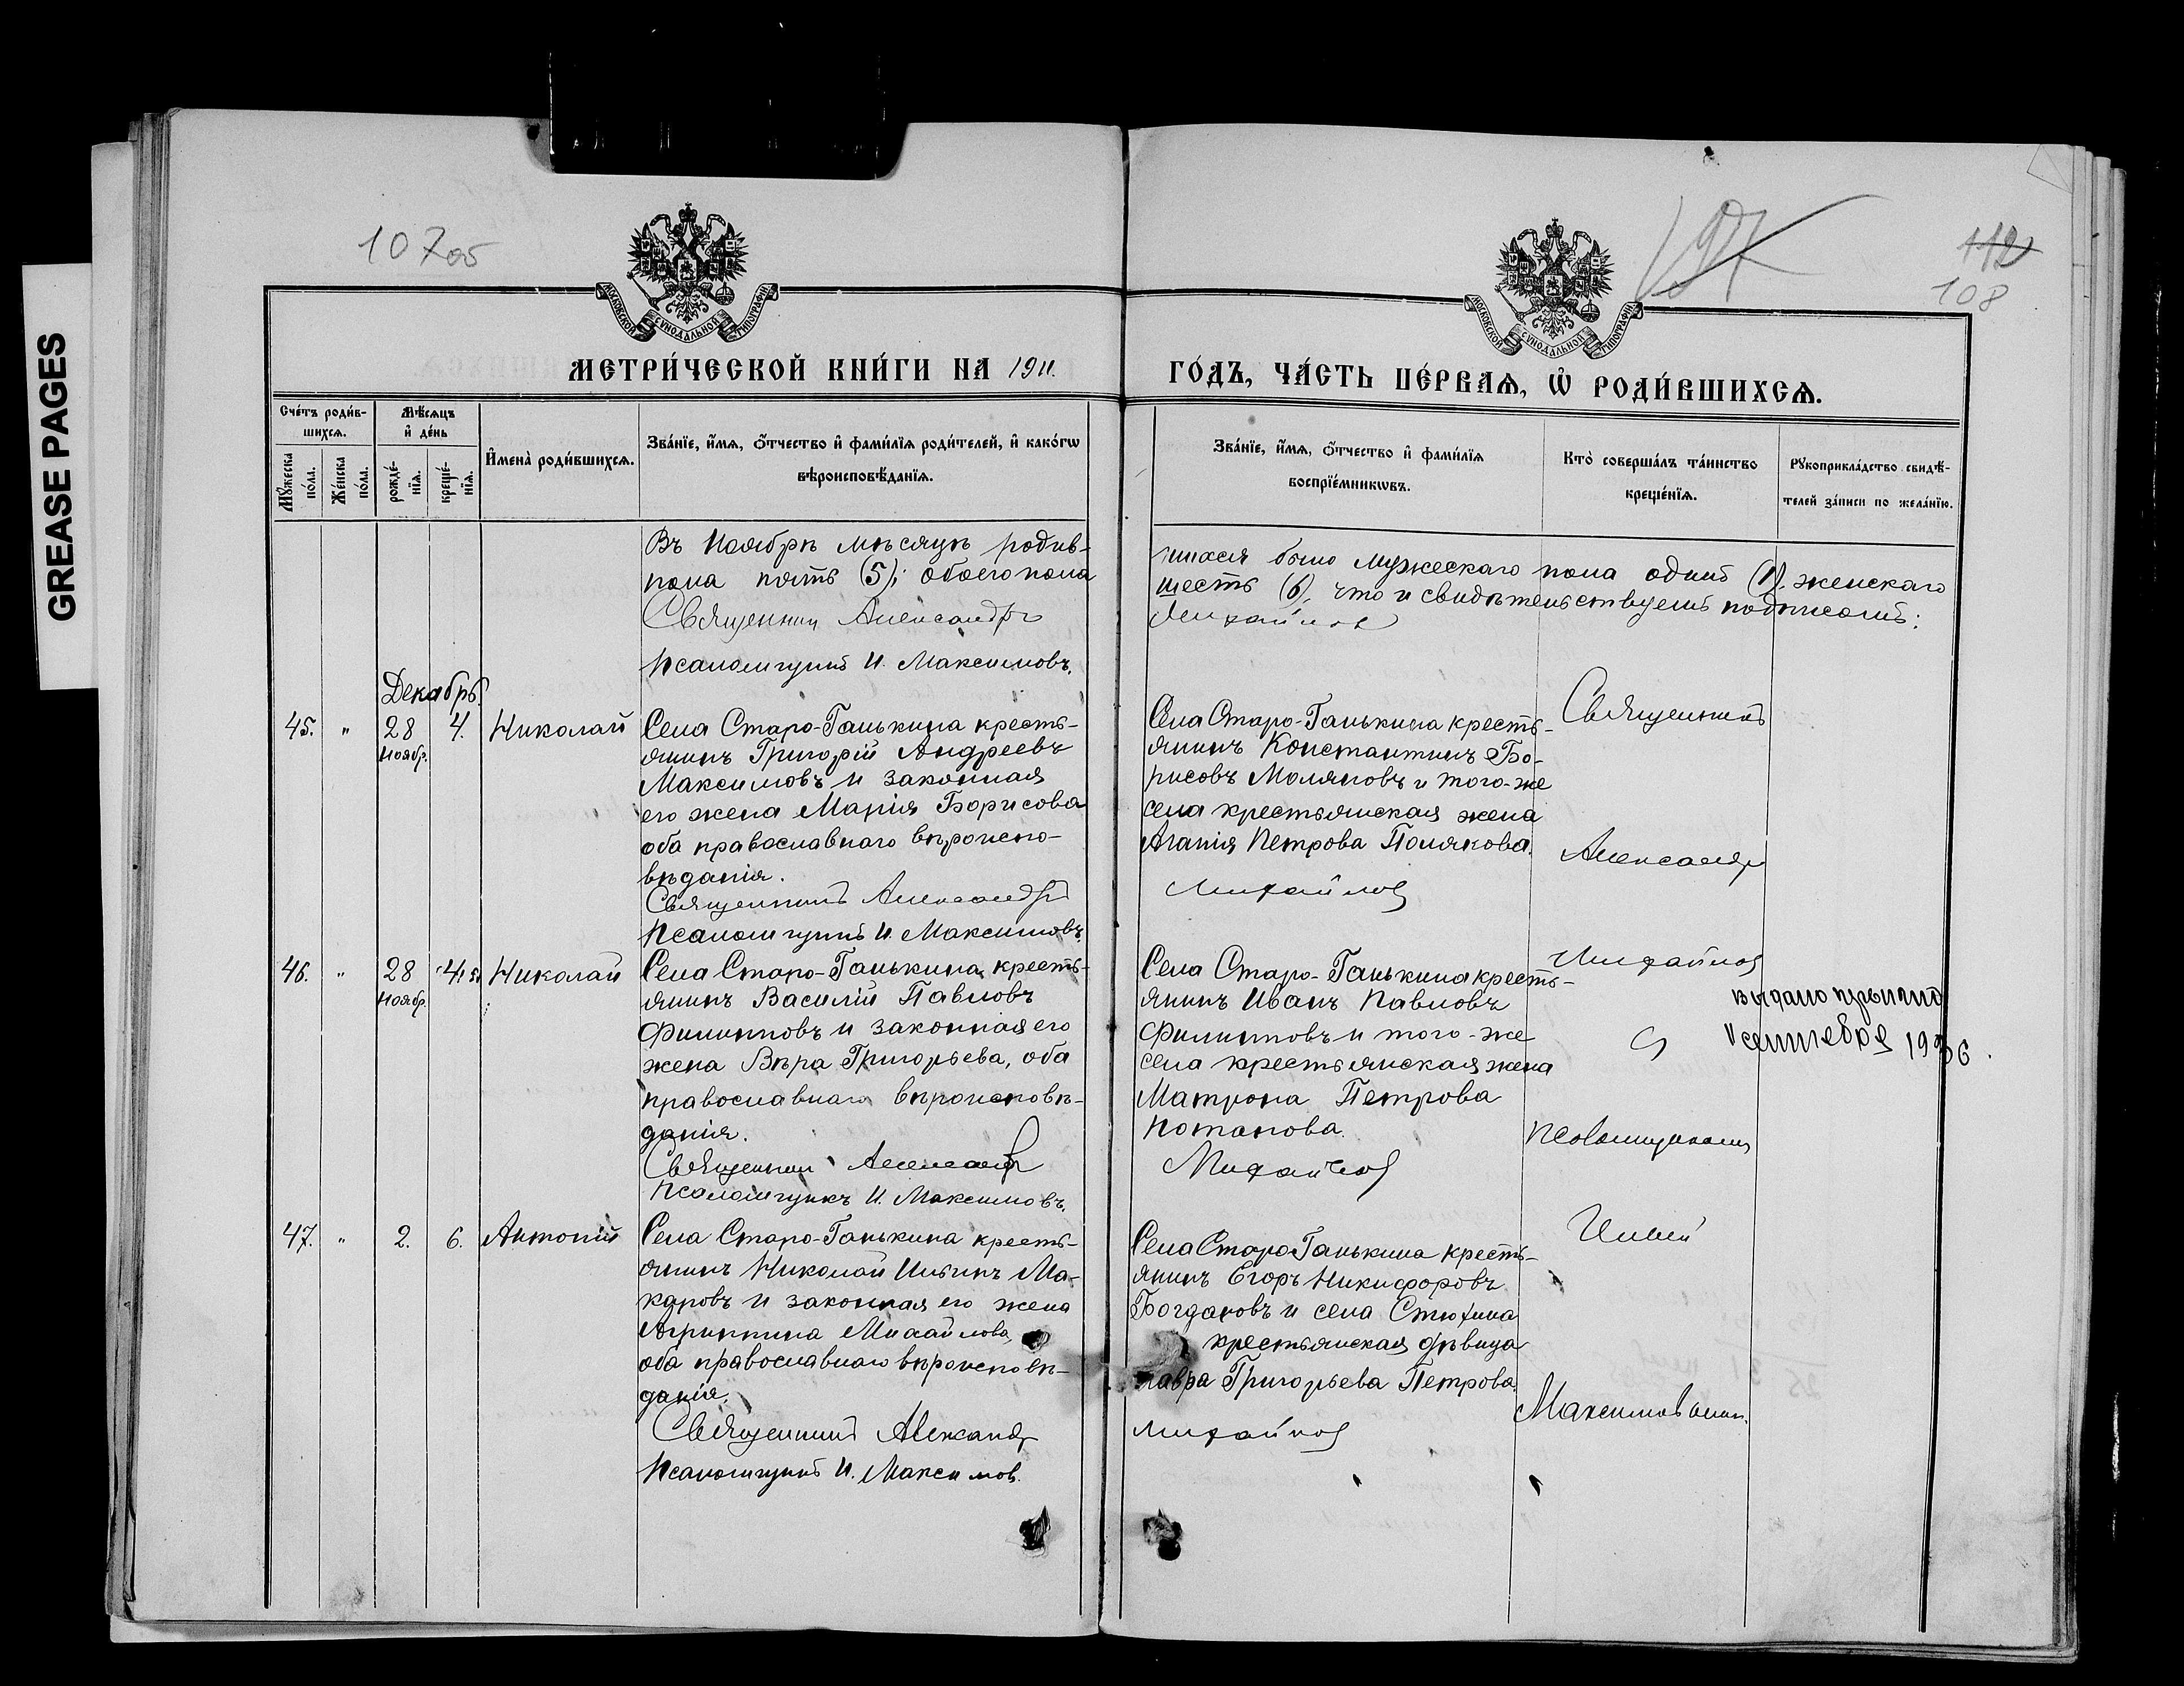 GREASE PAGES
107об
112
108
МОСКОВСКОЙ СѴНОДАЛЬНОЙ ТИПОГРАФІИ
МОСКОВСКОЙ СѴНОДАЛЬНОЙ ТИПОГРАФІИ
МЕТРИ́ЧЕСКОЙ КНИ́ГИ НА 1911.
ГО́ДЪ, ЧА́СТЬ ПЕ́РВАѦ, Ѡ҆ РОДИ́ВШИХСѦ.
Сче́тъ роди́в-
шихсѧ.
Мꙋ́жеска по́ла.
Же́нска по́ла.
Мѣ́сѧцъ
и҆ де́нь
рожде́-нїѧ.
креще́-нїѧ.
И҆мена̀ роди́вшихсѧ.
Зва́нїе, и҆́мѧ, ѻ҆́тчество и҆ фами́лїѧ роди́телей, и҆ како́гѡ
вѣроисповѣ́данїѧ.
Зва́нїе, и҆́мѧ, ѻ҆́тчество и҆ фами́лїѧ
воспрїе́мникѡвъ.
Кто̀ соверша́лъ та́инство
креще́нїѧ.
Рꙋкоприкла́дство свидѣ́-
телей за́писи по жела́нїю.
Въ Ноябрѣ мѣсяцѣ родив-
шихся было мужескаго пола одинъ (1), женскаго
пола пять (5); обоего пола
шесть (6), что и свидѣтельствуемъ подписомъ:
Священник Александръ
Михайлов
Псаломщикъ И. Максимовъ.
Декабрь.
45. " 28 Ноябр. 4. Николай
Села Старо-Ганькина кресть-
янинъ Григорій Андреевъ
Максимовъ и законная
его жена Марія Борисова
оба православнаго вѣроиспо-
вѣданія.
Священникъ Александръ
Псаломщикъ И. Максимовъ.
Села Старо-Ганькина кресть-
янинъ Константинъ Бо-
рисовъ Моляновъ и того-же
села крестьянская жена
Агапія Петрова Полякова.
Михайлов
Священникъ
Александр
Михайлов
46. " 28 Ноябр. 4 Николай
Села Старо-Ганькина кресть-
янинъ Василій Павловъ
Филипповъ и законная его
жена Вѣра Григорьева, оба
православнаго вѣроисповѣ-
данія.
Священник Александр
Псаломщикъ И. Максимовъ.
Села Старо-Ганькина кресть-
янинъ Иванъ Павловъ
Филипповъ и того-же
села крестьянская жена
Матрона Петрова
Потапова.
Михайлов
с
псаломщиком
выдано
сентебре 1936.
47. " 2. 6. Антоній
Села Старо-Ганькина кресть-
янинъ Николай Ильинъ Ма-
каровъ и законная его жена
Агриппина Михайлова,
оба православнаго вѣроисповѣ-
данія.
Священникъ Александр
Псаломщикъ И. Максимов.
Села Старо-Ганькина кресть-
янинъ Егоръ Никифоровъ
Богдановъ и села Стюхина
крестьянская дѣвица
Григорьева Петрова.
Михайлов
Ильей
Максимовым.